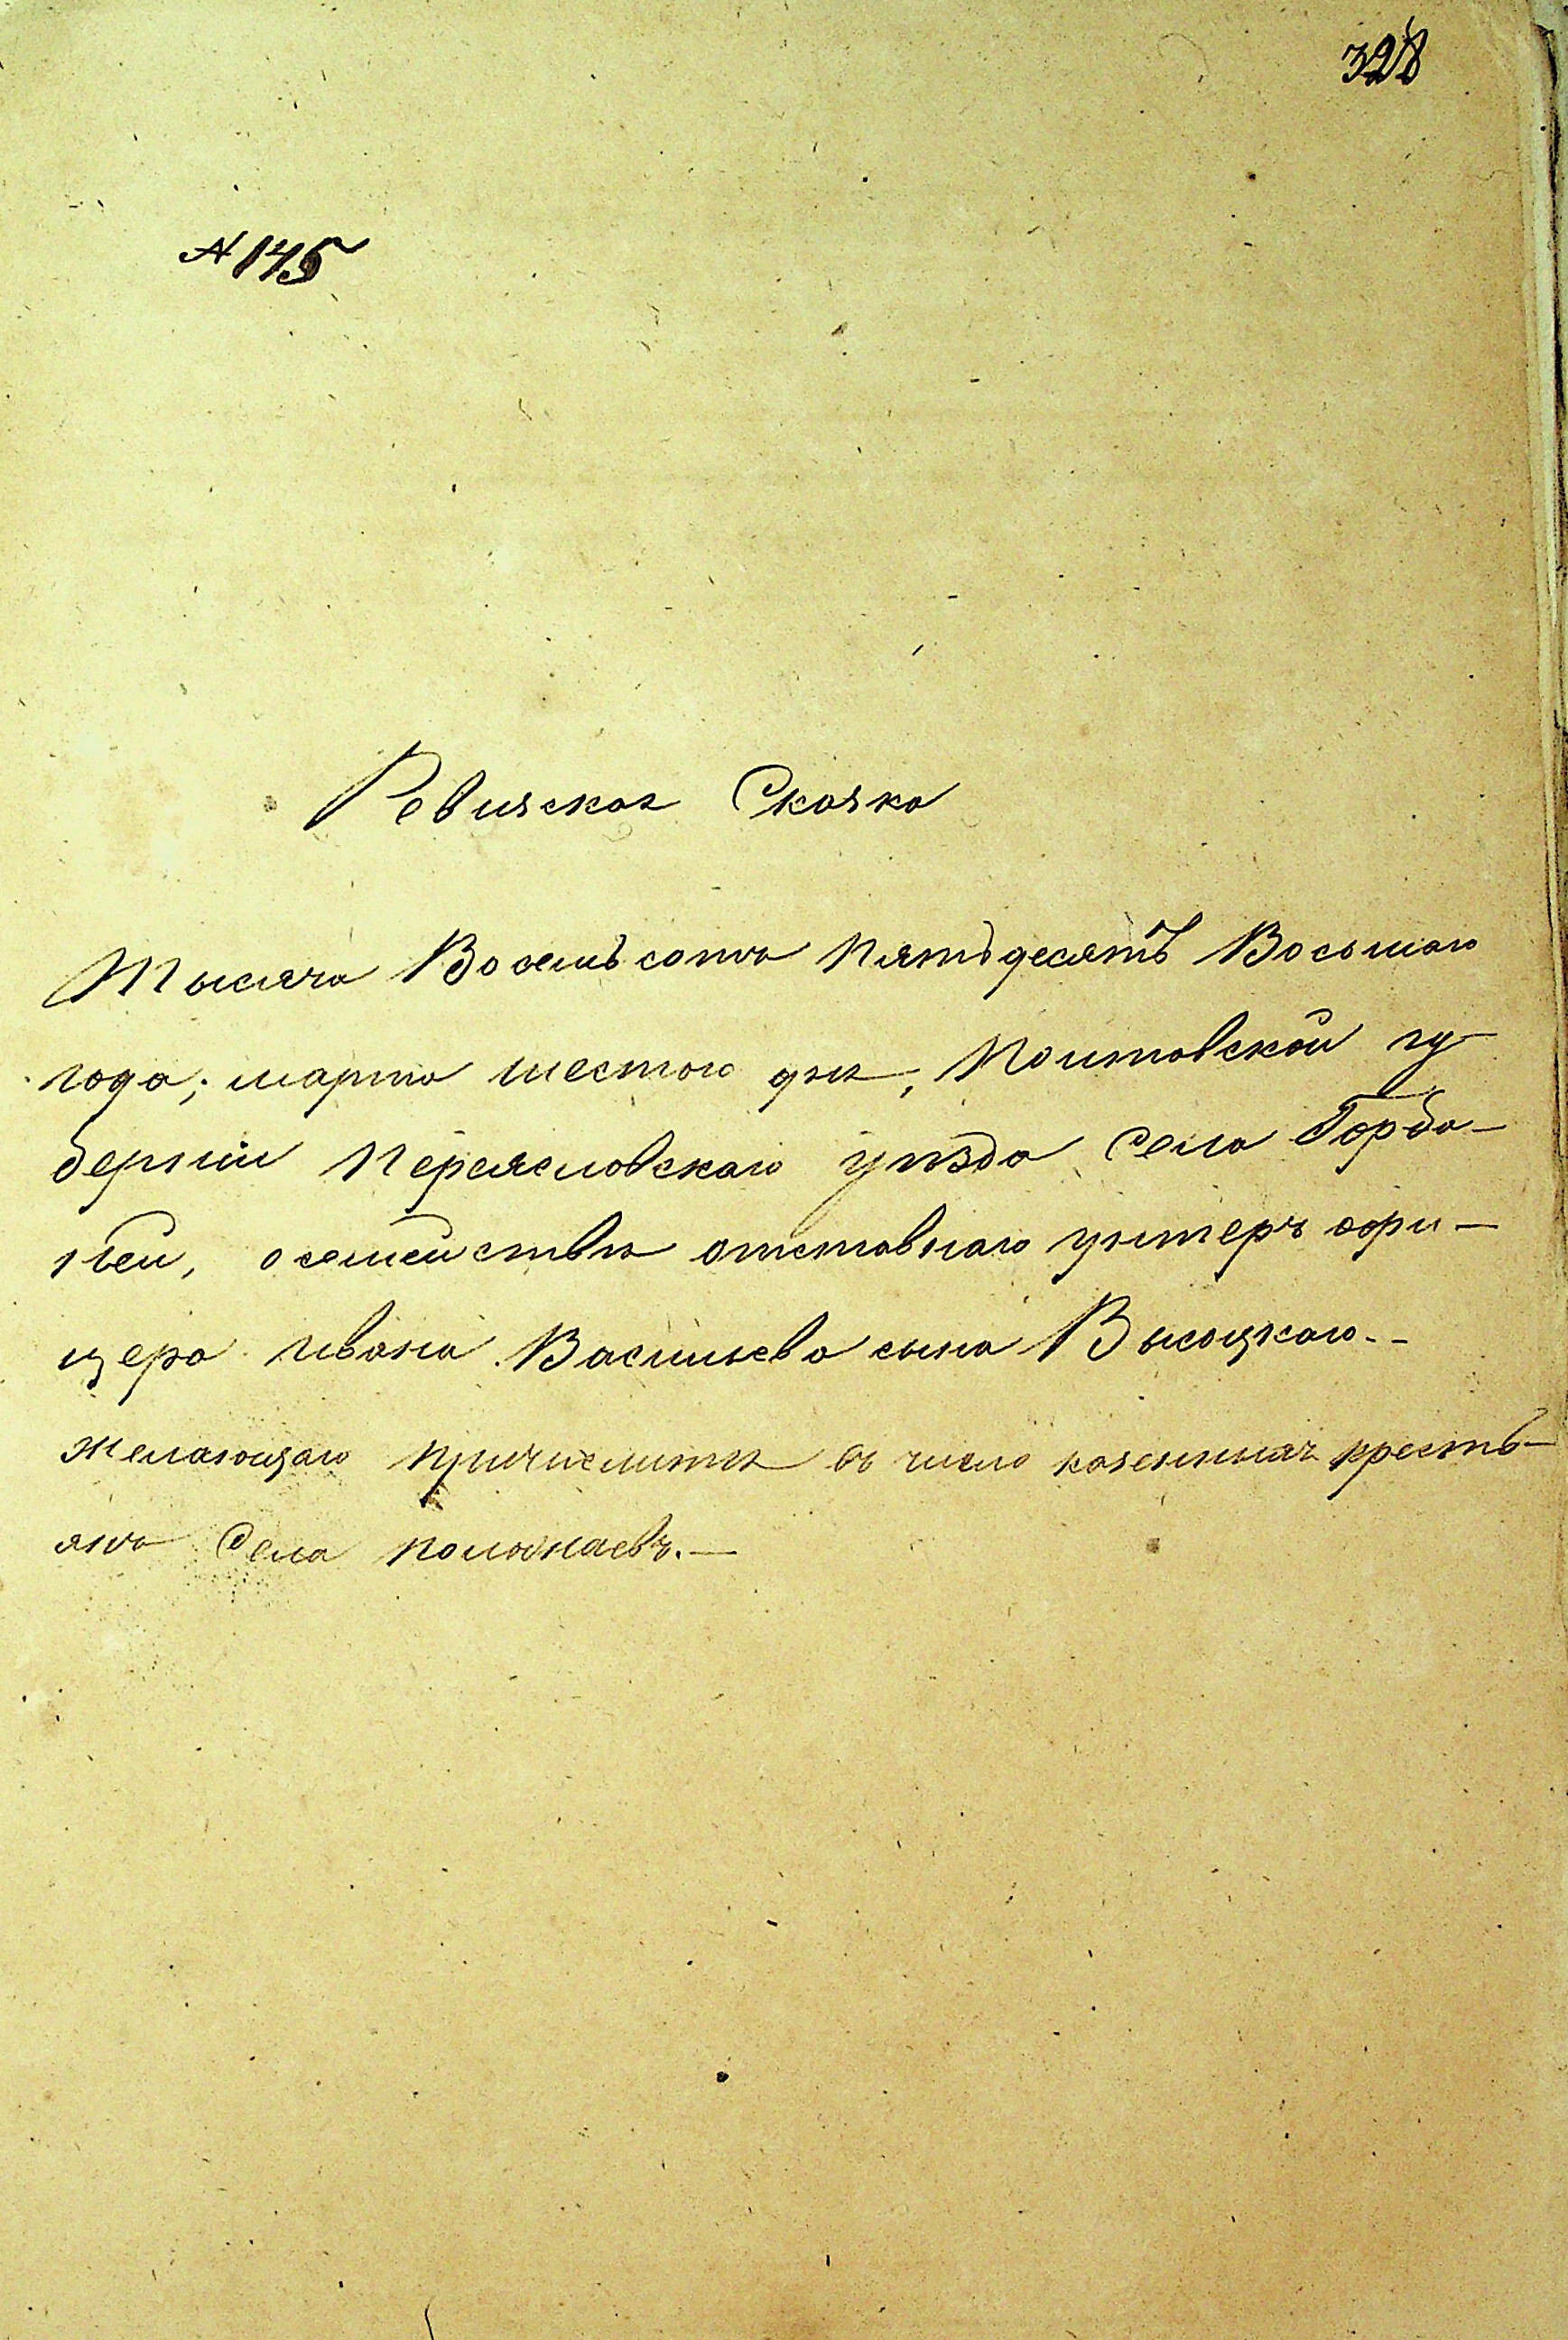 328
№ 145
Ревизская Сказка
Тысяча Восемьсотъ Пятьдесятъ Восьмаго
года, марта шестого дня, Полтавской гу
берніи Переяславскаго уѣзда Села Горба-
ней, о семействѣ отставнаго унтеръ офи-
цера Ивана Васильева сына Высоцкаго.-
желающаго причислится въ число казенныхъ кресть-
янъ Села